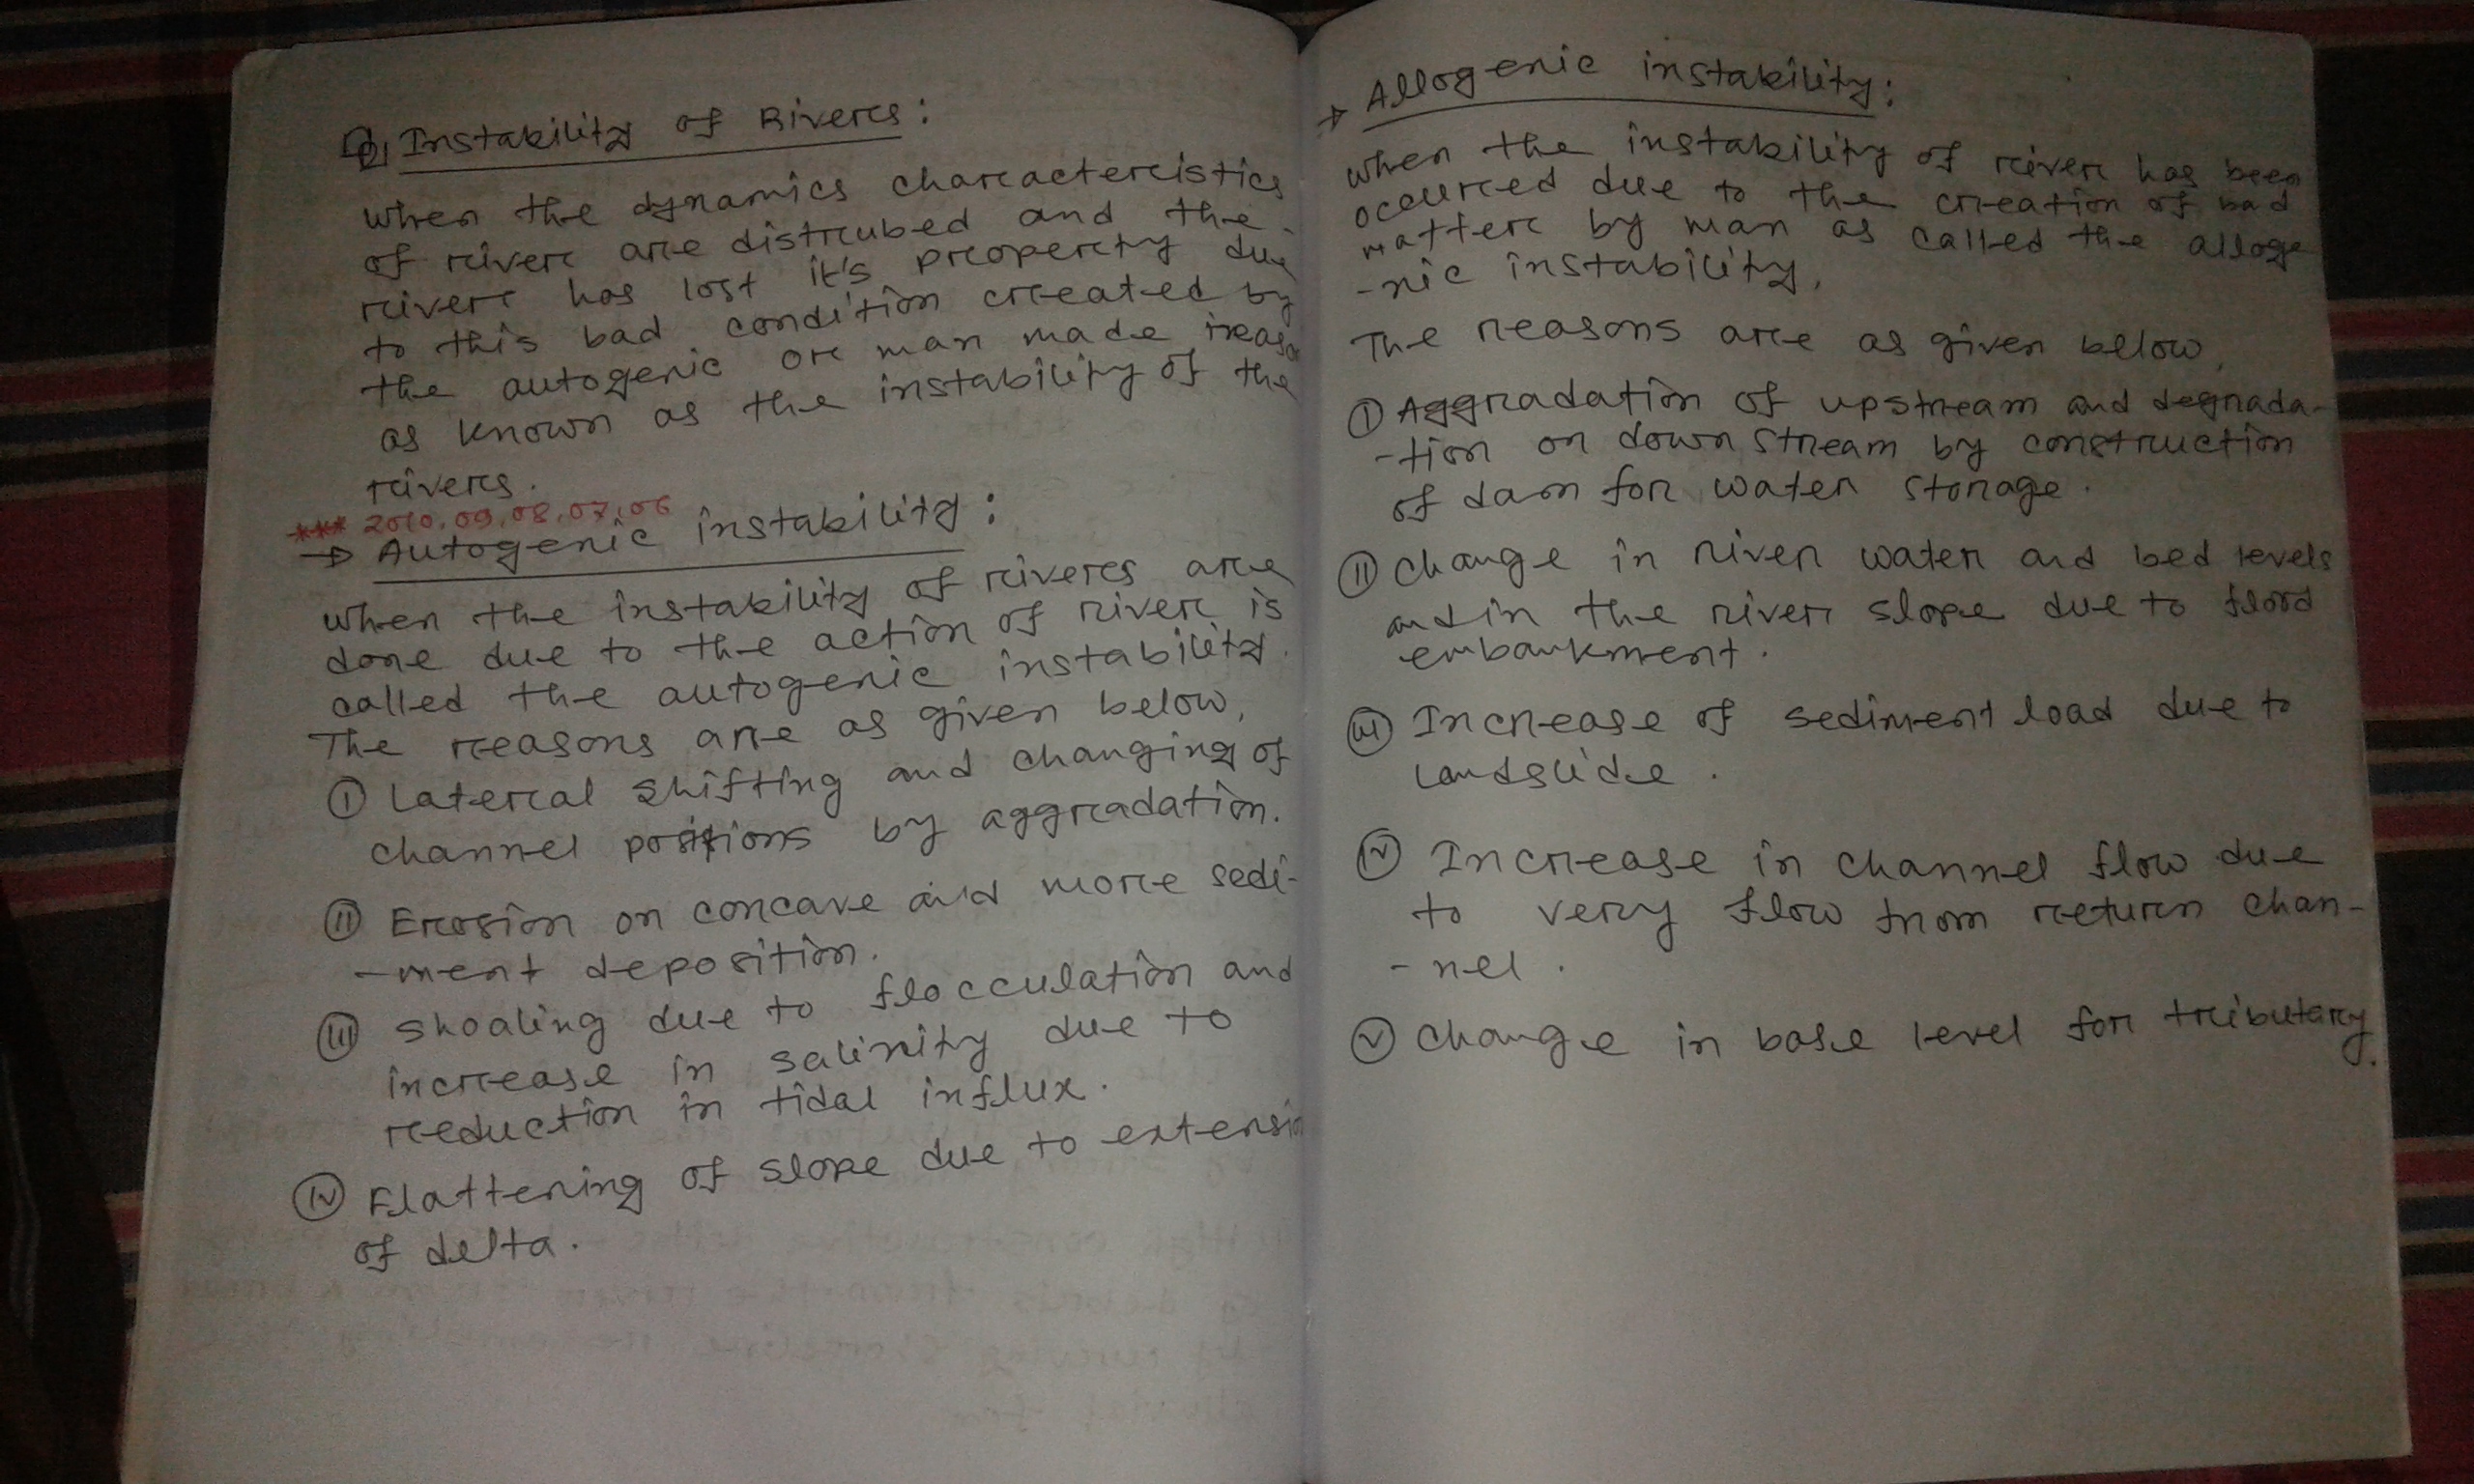 Q1 Instability of Rivers:
When the dynamics characteristics
of river are distrubed and the
river has lost it's property due
to this bad condition created by
the autogenic or man made reaso
as known as the instability of the
rivers.
*** 2010, 09, 08, 07, 06
→ Autogenic instability:
When the instability of rivers are
done due to the action of river is
called the autogenic instability.
The reasons are as given below,
(i) Lateral shifting and changing of
channel positions by aggradation.
(ii) Erosion on concave and more sedi-
-ment deposition.
(iii) Shoaling due to flocculation and
increase in salinity due to
reduction in tidal influx.
(iv) Flattening of slope due to extensio
of delta.
→ Allogenic instability:
When the instability of river has been
occurred due to the creation of bad
matter by man as called the alloge
-nic instability.
The reasons are as given below,
(i) Aggradation of upstream and degrada-
-tion on down stream by construction
of dam for water storage.
(ii) Change in river water and bed levels
and in the river slope due to flood
embankment.
(iii) Increase of sediment load due to
Landslide.
(iv) Increase in channel flow due
to very flow from return chan-
-nel.
(v) Change in base level for tributary.